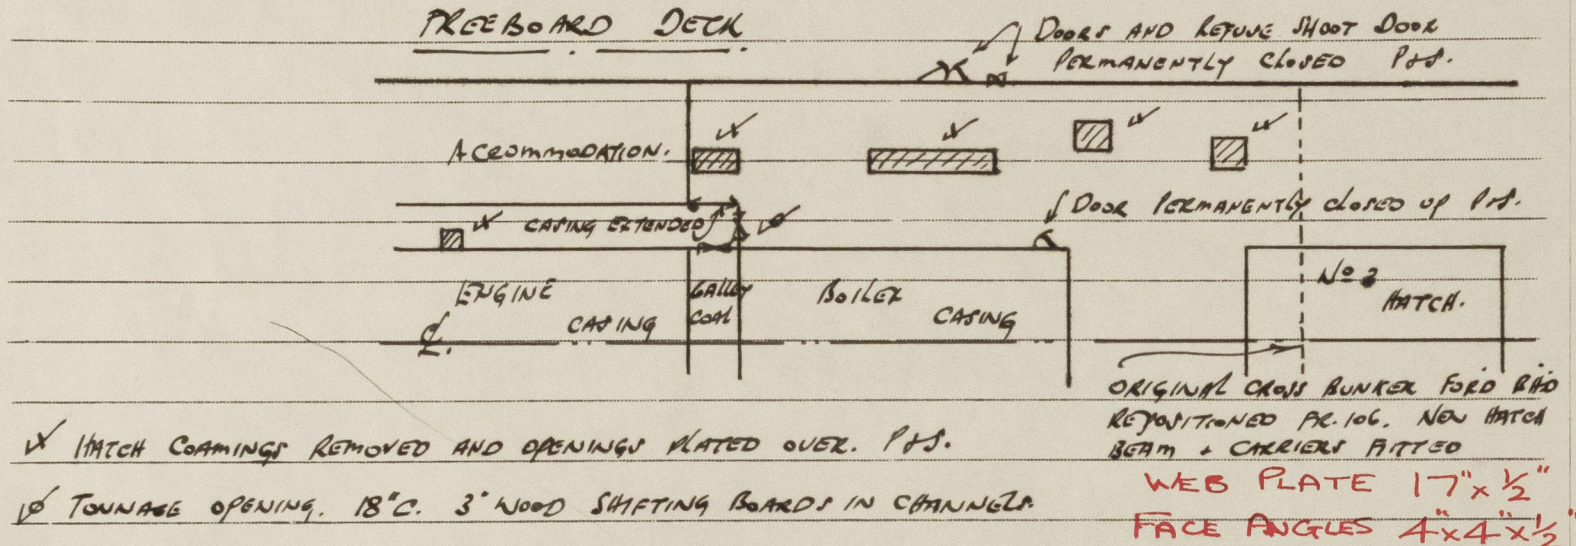 FREEBOARD DECK
DOORS AND REFUSE SHOOT DOOR
PERMANENTLY CLOSED P&S.
ACCOMMODATION.
CASING EXTENDED
DOOR PERMANENTLY CLOSED UP P&S.
ENGINE
CASING
GALLEY
COAL
BOILER
CASING
No 3
HATCH.
ORIGINAL CROSS BUNKER FOR'D BHD
REPOSITIONED FR. 106. NEW HATCH
BEAM & CARRIERS FITTED
HATCH COAMINGS REMOVED AND OPENINGS PLATED OVER. P&S.
TONNAGE OPENING. 18"C. 3" WOOD SHIFTING BOARDS IN CHANNELS.
WEB PLATE 17" x 1/2"
FACE ANGLES 4" x 4" x 1/2"